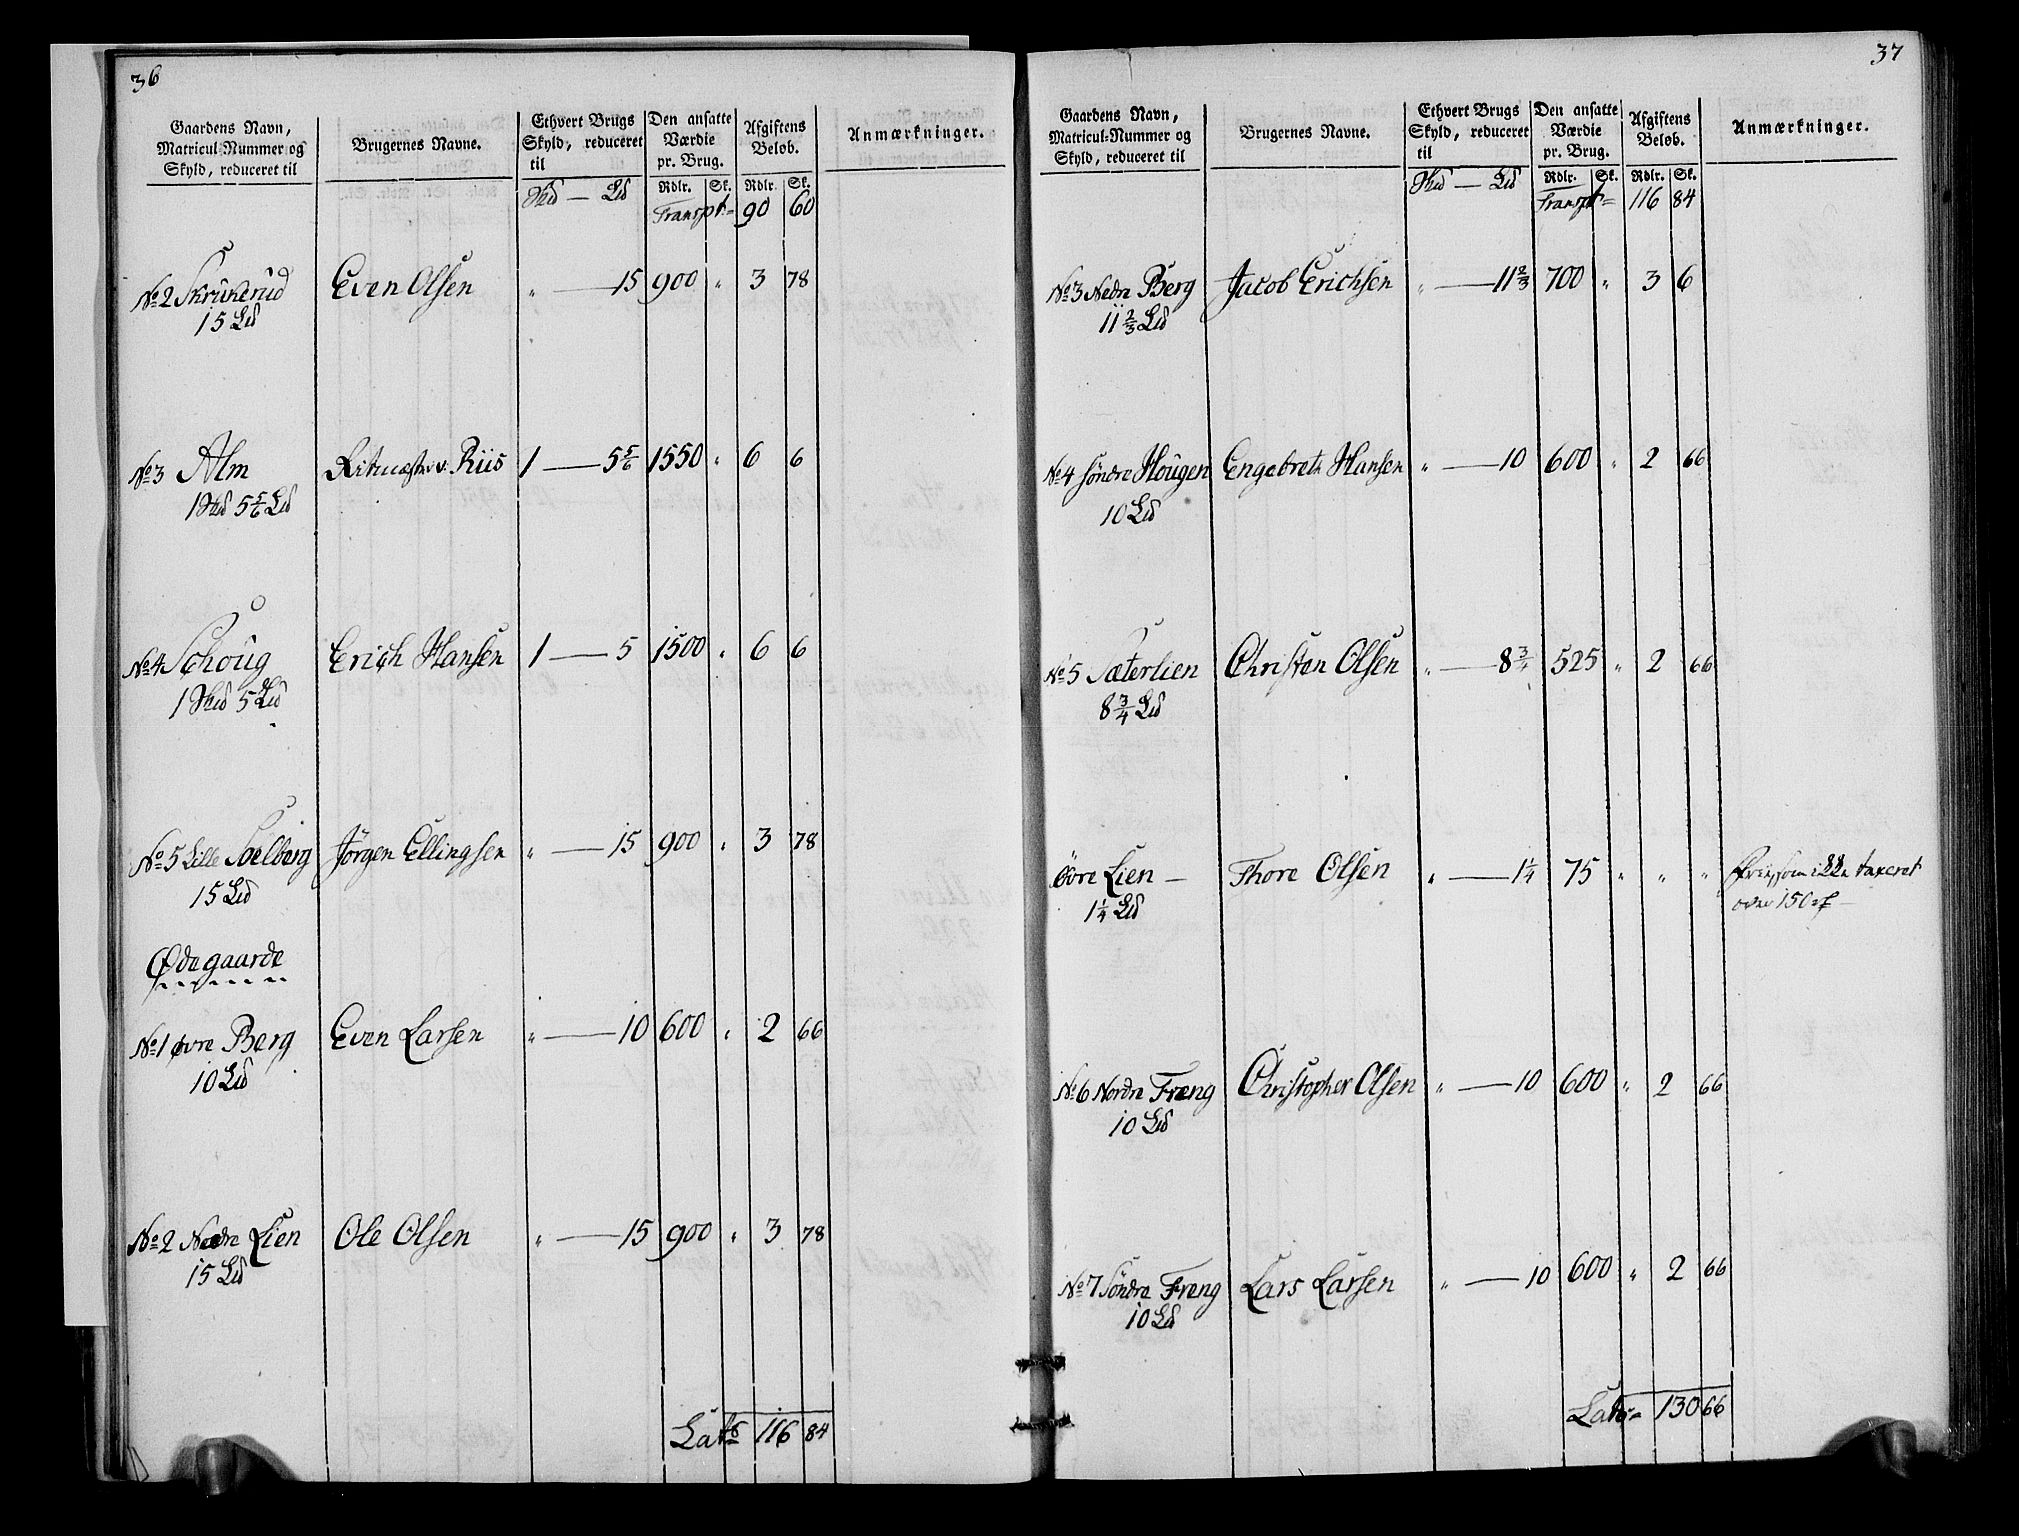 36
Gaardens Navn, Matricul-Nummer og Skyld, reduceret til
Brugernes Navne.
Ethvert Brugs Skyld, reduceret til
Den ansatte Værdie pr. Brug.
Afgiftens Beløb.
Anmærkninger.
Rdlr. Sk. Rdlr. Sk.
Hud — Ld
Transpt= 90 60
No 2 Skrukerud Even Olsen " — 15 900 " 3 78
15 Ld
No 3 Alm Ritmester v: Riis 1 — 5 5/6 1550 " 6 6
1 Hud 5 5/6 Ld
No 4 Schoug Erich Hansen 1 — 5 1500 " 6 6
1 Hud 5 Ld
No 5 Lille Soelberg Jørgen Ellingsen " — 15 900 " 3 78
15 Ld
Ødegaarde
No 1 øvre Berg Even Larsen " — 10 600 " 2 66
10 Ld
No 2 Nedre Lien Ole Olsen " — 15 900 " 3 78
15 Ld
Lats 116 84
37
Gaardens Navn, Matricul-Nummer og Skyld, reduceret til
Brugernes Navne.
Ethvert Brugs Skyld, reduceret til
Den ansatte Værdie pr. Brug.
Afgiftens Beløb.
Anmærkninger.
Rdlr. Sk. Rdlr. Sk.
Hud — Ld
Transpt= 116 84
No 3 Nedre Berg Jacob Erichsen " — 11 2/3 700 " 3 6
11 2/3 Ld
No 4 Søndre Hougen Engebret Hansen " — 10 600 " 2 66
10 Ld
No 5 Sæterlien Christen Olsen " — 8 3/4 525 " 2 66
8 3/4 Ld
Øvre Lien — Thore Olsen " — 1 1/4 75 " " " fri, som ikke taxeret
1 1/4 Ld over 150 rd —
No 6 Nordre Freng Christopher Olsen " — 10 600 " 2 66
10 Ld
No 7 Søndre Freng Lars Larsen " — 10 600 " 2 66
10 Ld
Lats= 130 66